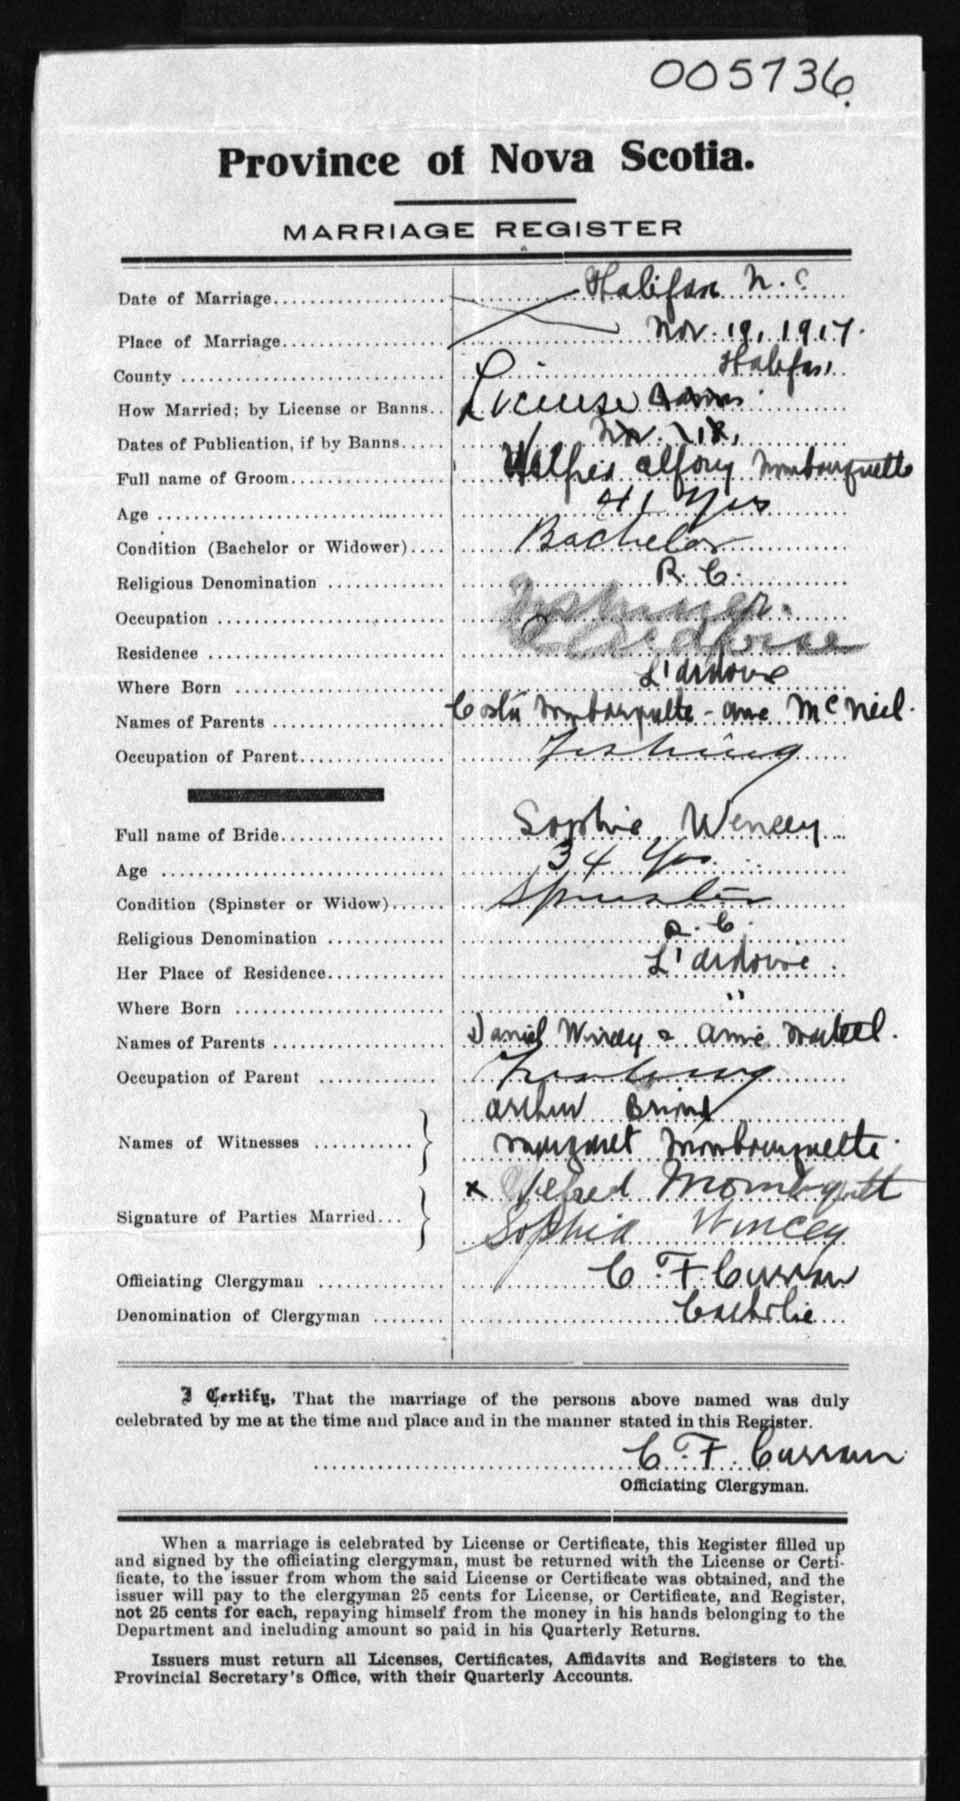 005736
Province of Nova Scotia.
MARRIAGE REGISTER
Date of Marriage Halifax N. S
Place of Marriage Nov. 19, 1917.
County Halifax
How Married; by License or Banns License
Dates of Publication, if by Banns
Full name of Groom Mombourquette
Age 41 Yrs
Condition (Bachelor or Widower) Bachelor
Religious Denomination R. C.
Occupation
Residence
Where Born L'ardoise
Names of Parents Mombourquette - Anne McNeil.
Occupation of Parent Fishing
Full name of Bride Sophie Wencey
Age 34 Yrs
Condition (Spinster or Widow) Spinster
Religious Denomination R. C.
Her Place of Residence L'ardoise
Where Born "
Names of Parents Daniel &
Occupation of Parent Fishing
Arthur
Names of Witnesses Margaret Mombourquette
x Wilfred
Signature of Parties Married Sophia Wincey
Officiating Clergyman C. F Curran
Denomination of Clergyman Catholic
I Certify, That the marriage of the persons above named was duly
celebrated by me at the time and place and in the manner stated in this Register.
C. F. Curran
Officiating Clergyman.
When a marriage is celebrated by License or Certificate, this Register filled up
and signed by the officiating clergyman, must be returned with the License or Certi-
ficate, to the issuer from whom the said License or Certificate was obtained, and the
issuer will pay to the clergyman 25 cents for License, or Certificate, and Register,
not 25 cents for each, repaying himself from the money in his hands belonging to the
Department and including amount so paid in his Quarterly Returns.
Issuers must return all Licenses, Certificates, Affidavits and Registers to the
Provincial Secretary's Office, with their Quarterly Accounts.